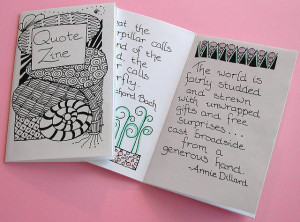 Quote
Zine
at the
erpillar calls
nd of the
d, the
r calls
erfly
chard Bach
The world is
fairly studded
and strewn
with unwrapped
gifts and free
surprises...
cast broadside
from a
generous hand.
-Annie Dillard